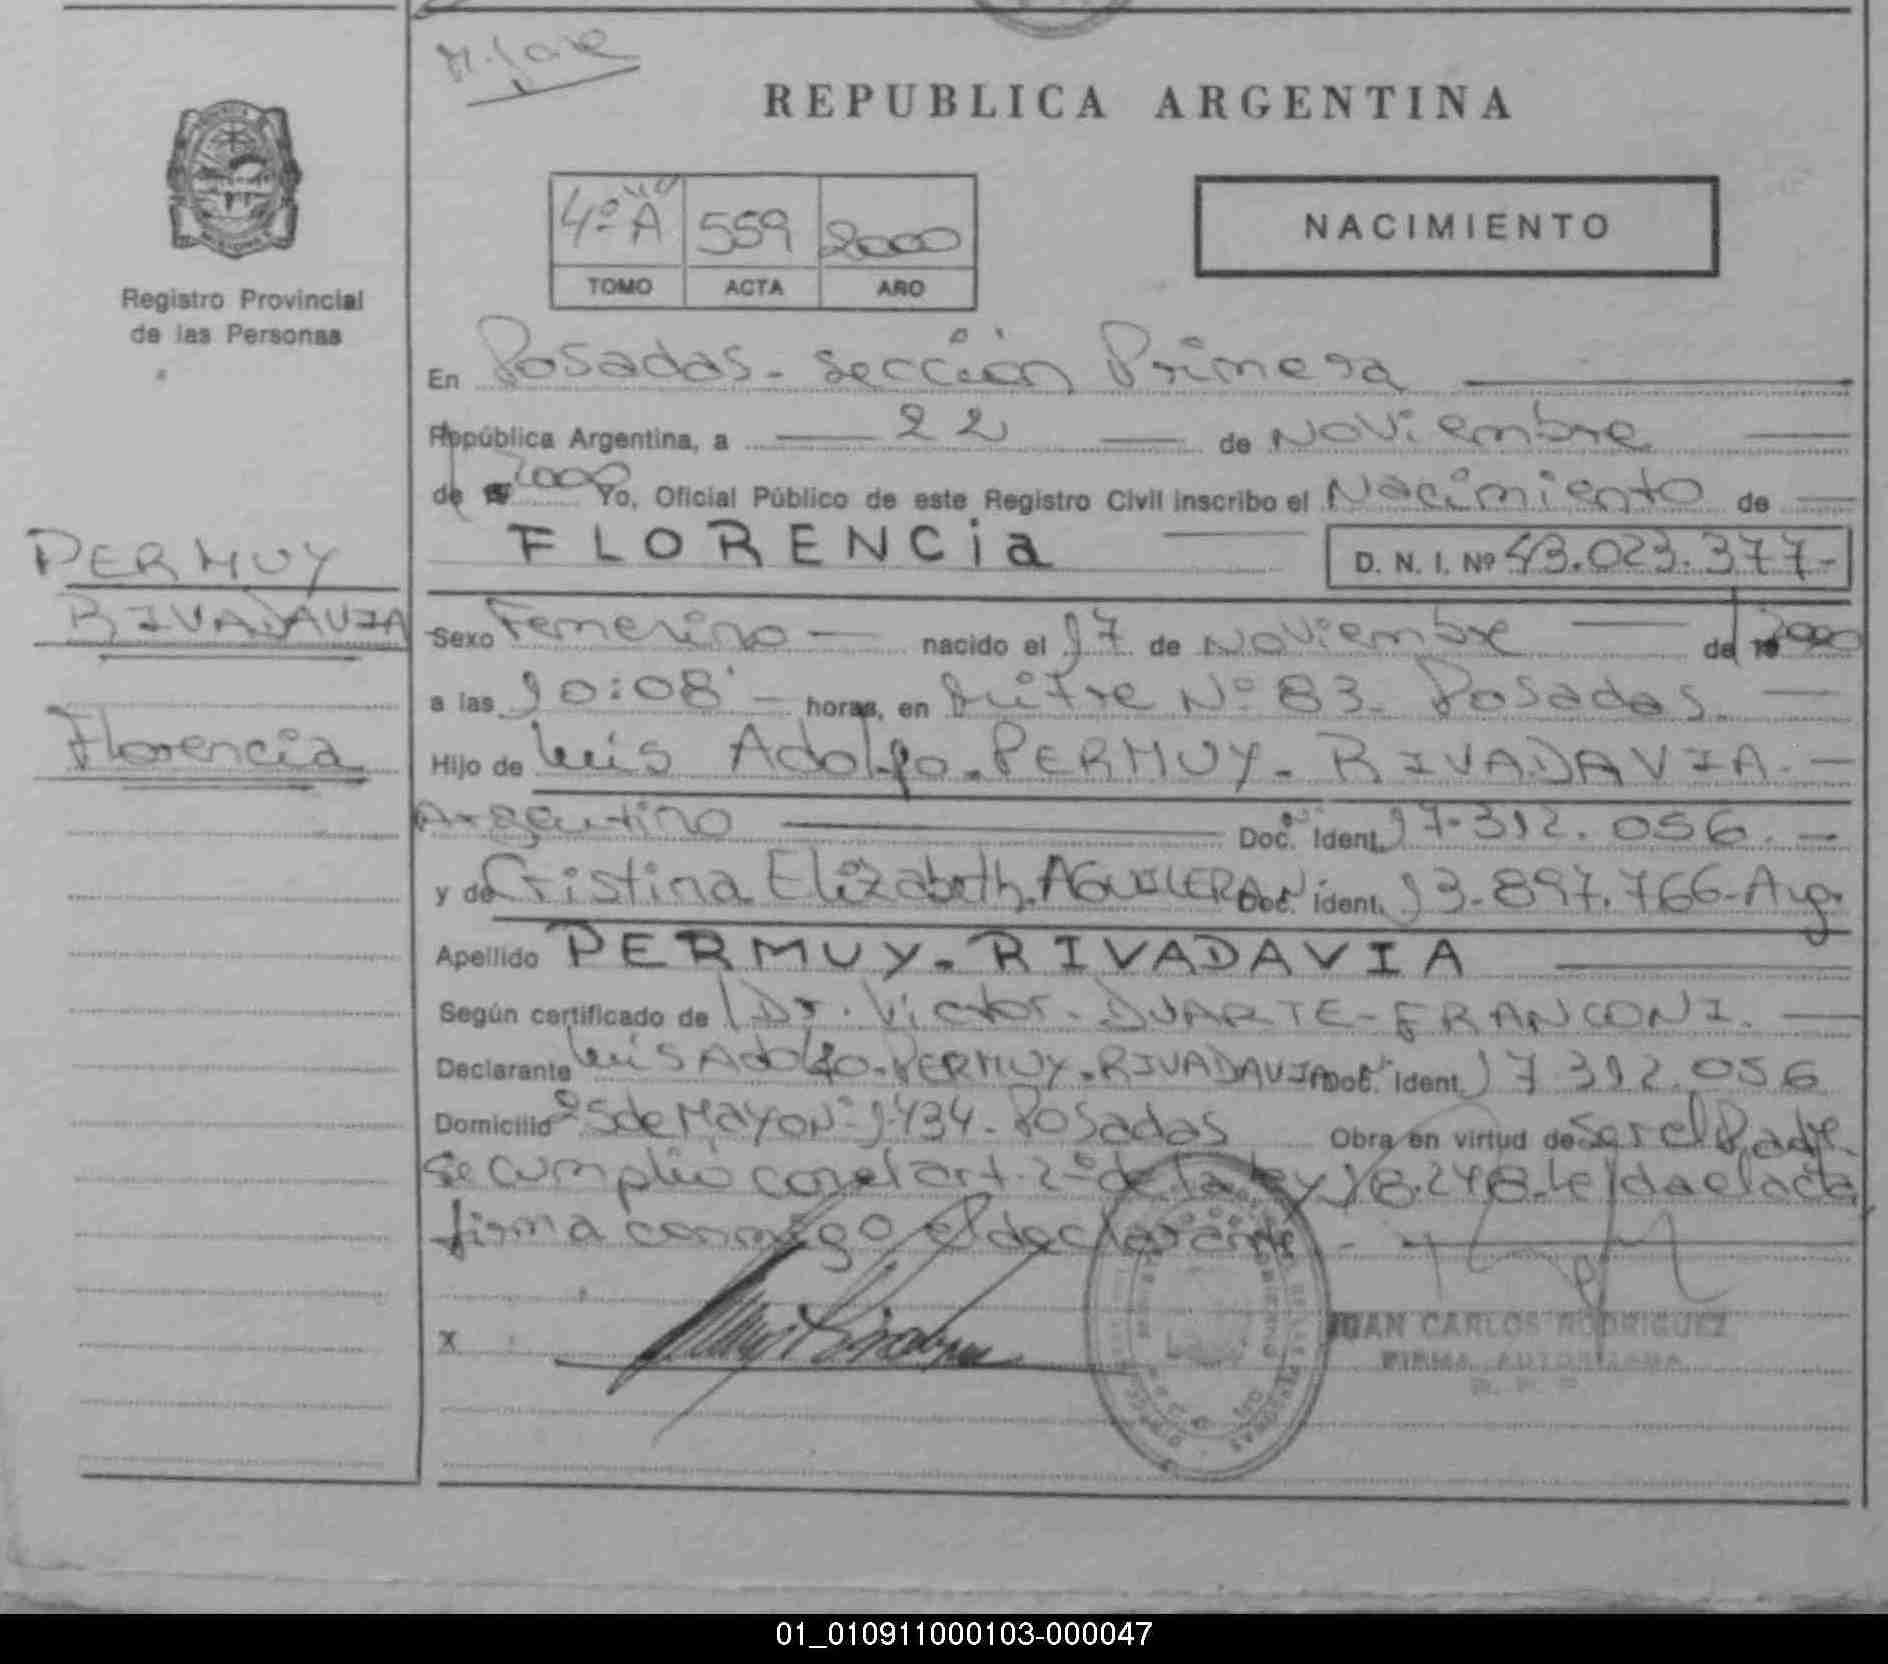 REPUBLICA ARGENTINA
4º "A" 559 2000
TOMO ACTA AÑO
NACIMIENTO
Registro Provincial
de las Personas
En Posadas - Sección Primera
República Argentina, a 22 de Noviembre
de 2000 Yo, Oficial Público de este Registro Civil inscribo el Nacimiento de
FLORENCia
D. N. I. Nº 43.023.377-
PERMUY
RIVADAVIA
Florencia
Sexo Femenino nacido el 17 de Noviembre de 2000
a las 10:08' horas, en Mitre Nº 83. Posadas.
Hijo de Luis Adolfo. PERMUY. RIVADAVIA.
Argentino Doc. Ident. 17.312.056.
y de Cristina Elizabeth. AGUILERA Doc. ident. 13.897.766-Arg.
Apellido PERMUY. RIVADAVIA
Según certificado de Dr. Victor. DUARTE-FRANCONI.
Declarante Luis Adolfo. PERMUY. RIVADAVIA Doc. Ident. 17 312.056
Domicilio 25 de MAYO Nº 1434. Posadas Obra en virtud de ser el Padre.
Se cumplió con el art. 2º de la ley 18.248. Leída el acta
firma conmigo el declarante.
x
JUAN CARLOS RODRIGUEZ
FIRMA AUTORIZADA
01_010911000103-000047